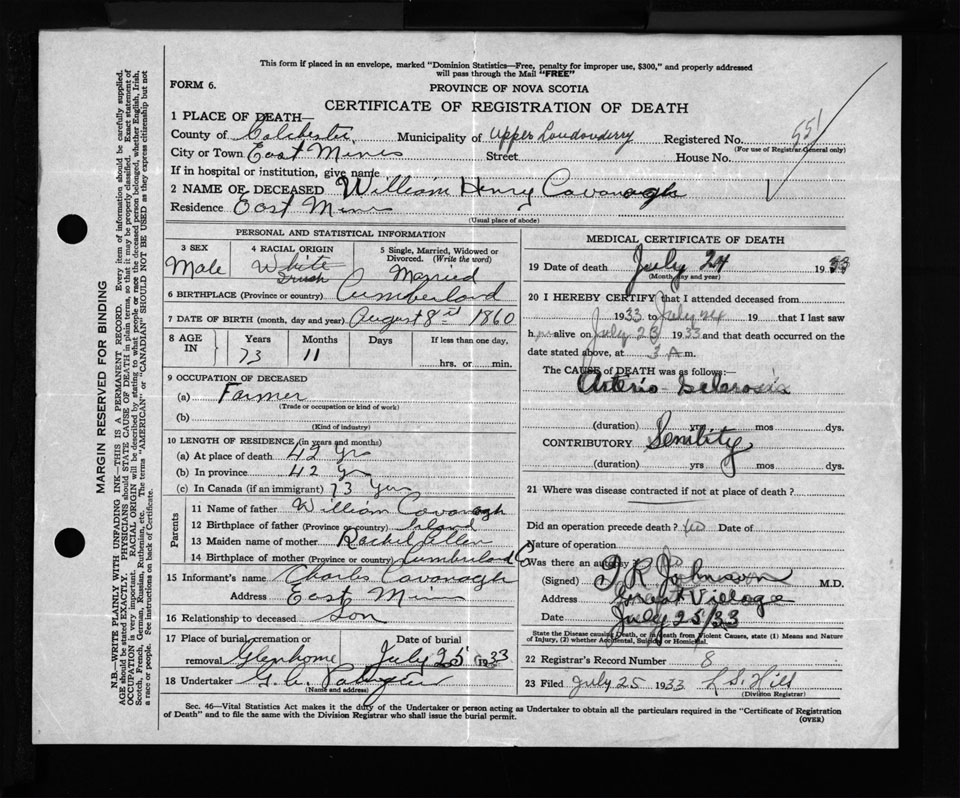 This form if placed in an envelope, marked "Dominion Statistics—Free, penalty for improper use, $300," and properly addressed
will pass through the Mail "FREE"
FORM 6.
PROVINCE OF NOVA SCOTIA
CERTIFICATE OF REGISTRATION OF DEATH
1 PLACE OF DEATH—
County of Colchester Municipality of Upper Londonderry Registered No. 551
(For use of Registrar-General only)
City or Town East Mines Street House No.
If in hospital or institution, give name
2 NAME OF DECEASED William Henry Cavanagh
Residence East Mines
(Usual place of abode)
PERSONAL AND STATISTICAL INFORMATION
3 SEX 4 RACIAL ORIGIN 5 Single, Married, Widowed or
Divorced. (Write the word)
Male White Irish Married
6 BIRTHPLACE (Province or country) Cumberland
7 DATE OF BIRTH (month, day and year) August 8 1860
8 AGE IN Years Months Days If less than one day,
73 11 hrs. or min.
9 OCCUPATION OF DECEASED
(a) Farmer
(Trade or occupation or kind of work)
(b)
(Kind of industry)
10 LENGTH OF RESIDENCE (in years and months)
(a) At place of death 42 yrs
(b) In province 42 yr
(c) In Canada (if an immigrant) 73 Years
Parents
11 Name of father William Cavanagh
12 Birthplace of father (Province or country)
13 Maiden name of mother Rachel Allen
14 Birthplace of mother (Province or country) Cumberland Co
15 Informant's name Charles Cavanagh
Address East Mines
16 Relationship to deceased Son
17 Place of burial, cremation or Date of burial
removal Glenholme July 25 1933
18 Undertaker G. C.
(Name and address)
MEDICAL CERTIFICATE OF DEATH
19 Date of death July 24 1933
(Month, day and year)
20 I HEREBY CERTIFY that I attended deceased from
1933 to July 24 19 that I last saw
h m alive on July 23 1933 and that death occurred on
date stated above, at 3 A m.
The CAUSE of DEATH was as follows:—
Arterio-Sclerosis
(duration) yrs mos dys.
CONTRIBUTORY Senility
(duration) yrs mos dys.
21 Where was disease contracted if not at place of death?
Did an operation precede death? No Date of
Nature of operation
Was there an autopsy? No
(Signed) T. R. Johnson M.D.
Address Great Village
Date July 25/33
State the Disease causing Death, or in death from Violent Causes, state (1) Means and Nature
of Injury, (2) whether Accidental, Suicidal or Homicidal.
22 Registrar's Record Number 8
23 Filed July 25 1933 L. S. Hill
(Division Registrar)
Sec. 46—Vital Statistics Act makes it the duty of the Undertaker or person acting as Undertaker to obtain all the particulars required in the "Certificate of Registration
of Death" and to file the same with the Division Registrar who shall issue the burial permit.
(OVER)
MARGIN RESERVED FOR BINDING
N.B.—WRITE PLAINLY WITH UNFADING INK—THIS IS A PERMANENT RECORD. Every item of information should be carefully supplied.
AGE should be stated EXACTLY. PHYSICIANS should STATE CAUSE OF DEATH in plain terms, so that it may be properly classified. Exact statement of
OCCUPATION is very important. RACIAL ORIGIN will be described by stating to what people or race the deceased person belonged, whether English, Irish,
Scotch, French, German, Russian, Ruthenian, etc. The terms "AMERICAN" or "CANADIAN" SHOULD NOT BE USED as they express citizenship but not
a race or people. See instructions on back of Certificate.